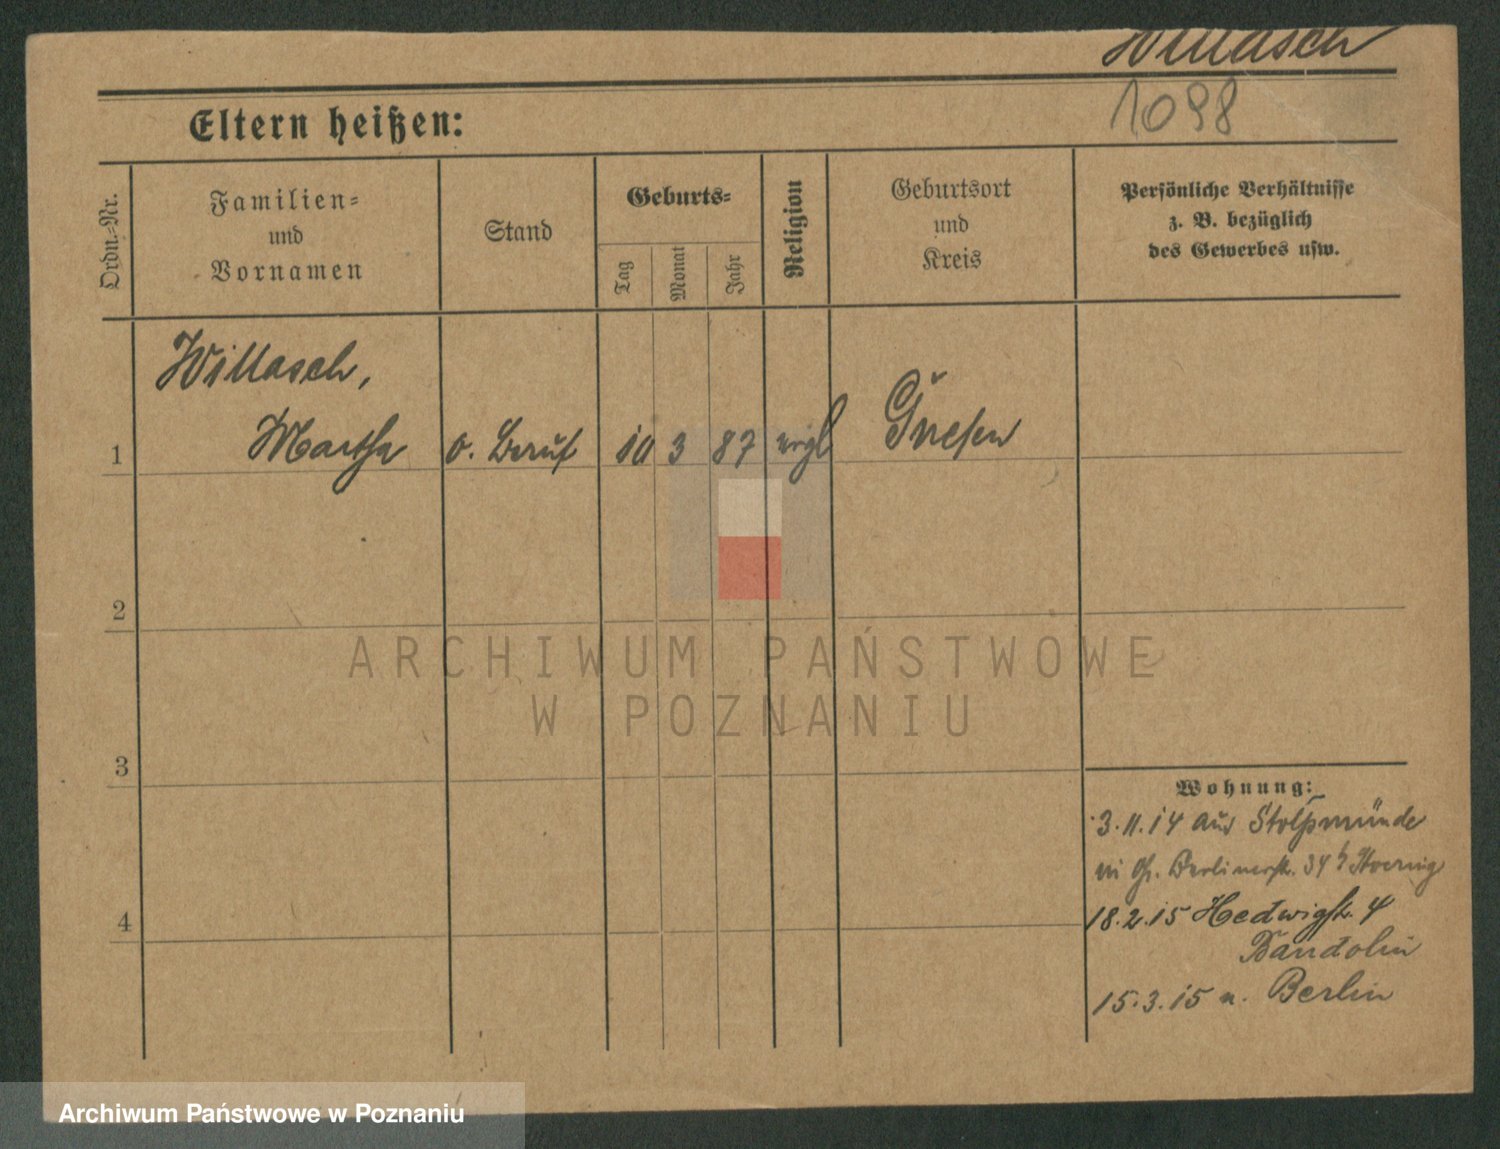 Willasch
1098
Eltern heißen:
Ordn.-Nr.
Familien-
und
Vornamen
Stand
Geburts-
Tag
Monat
Jahr
Religion
Geburtsort
und
Kreis
Persönliche Verhältnisse
z. B. bezüglich
des Gewerbes usw.
Willasch,
1 Martha o. Beruf 10 3 87 Gnesen
2
3
4
Wohnung:
3.11.14 aus Stolpmünde
Gr. Berlinerstr. 34
18.2.15 Hedwigstr. 4
Bandolin
15.3.15 n. Berlin
ARCHIWUM PAŃSTWOWE
W POZNANIU
Archiwum Państwowe w Poznaniu